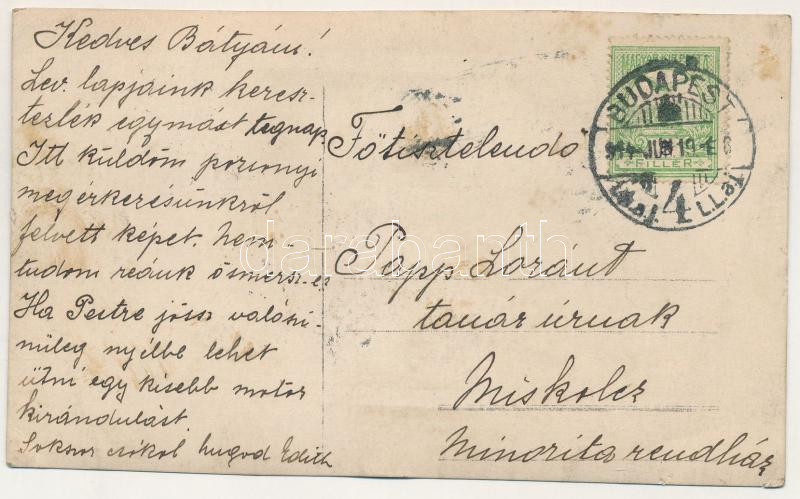 Kedves Bátyám!
Lev. lapjaink keresz-
tezték egymást tegnap
Itt küldöm pozsonyi
megérkezésünkről
felvett képet. Nem
tudom reánk ösmersz-e
Ha Pestre jössz valószi-
nüleg nyélbe lehet
ütni egy kisebb motor
kirándulást.
Sokszor csókol hugod Edith
Főtisztelendő
Papp Loránt
tanár úrnak
Miskolcz
Minorita rendház
BUDAPEST
914 JUN 19
4
FILLÉR
darabanth